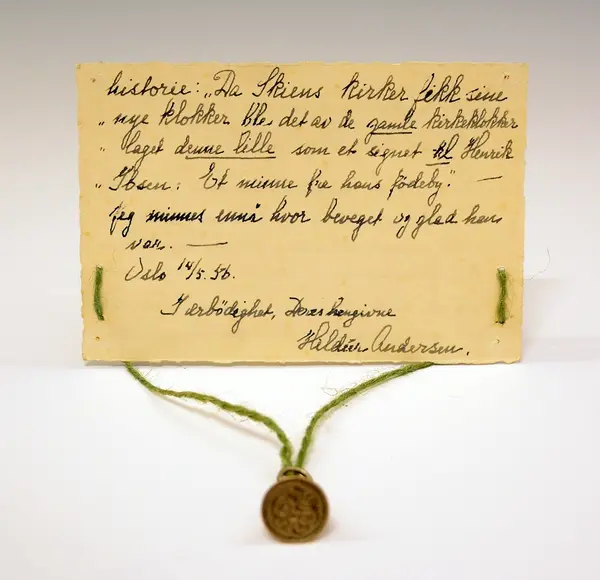 historie: „Da Skiens kirker fikk sine"
„ nye klokker ble det av de gamle kirkeklokker
„ laget denne lille som et signet til Henrik
„ Ibsen: Et minne fra hans fødeby." —
Jeg minnes ennå hvor beveget og glad han
var. —
Oslo 14/5. 56.
I ærbödighet, Deres hengivne
Haldür Andersen.